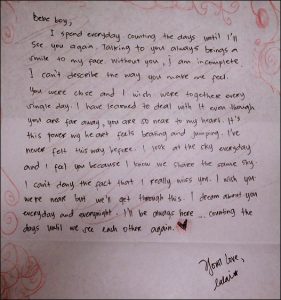 Bebe boy,
I spend everyday counting the days until I'll
see you again. Talking to you always brings a
smile to my face. Without you, I am incomplete.
I can't describe the way you move me feel.
You were close and I wish were together every
single day. I have learned to deal with it even though
you are far away, you are so near to my heart. It's
this power my heart feels beating and jumping. I've
never felt this way before. I look at the sky everyday
and I feel you because I know we share the same sky.
I can't deny the fact that I really miss you. I wish you
were near but we'll get through this. I dream about you
everyday and everynight. I'll be always here ... counting the
days until we see each other again.
From Love,